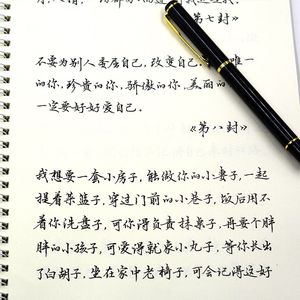 第七封》
不要为别人委屈自己,改变自己。你是唯一
的你,珍贵的你,骄傲的你,美丽的
一定要好好爱自己.
《第八封》
我想要一套小房子,能做你的小妻子,一起
提着菜篮子,穿过门前的小巷子,饭后用不
着你洗盘子,可你得负责抹桌子,再要个胖
胖的小孩子,可爱得就象小丸子,等你长出
了白胡子,坐在家中老椅子,可会记得这好